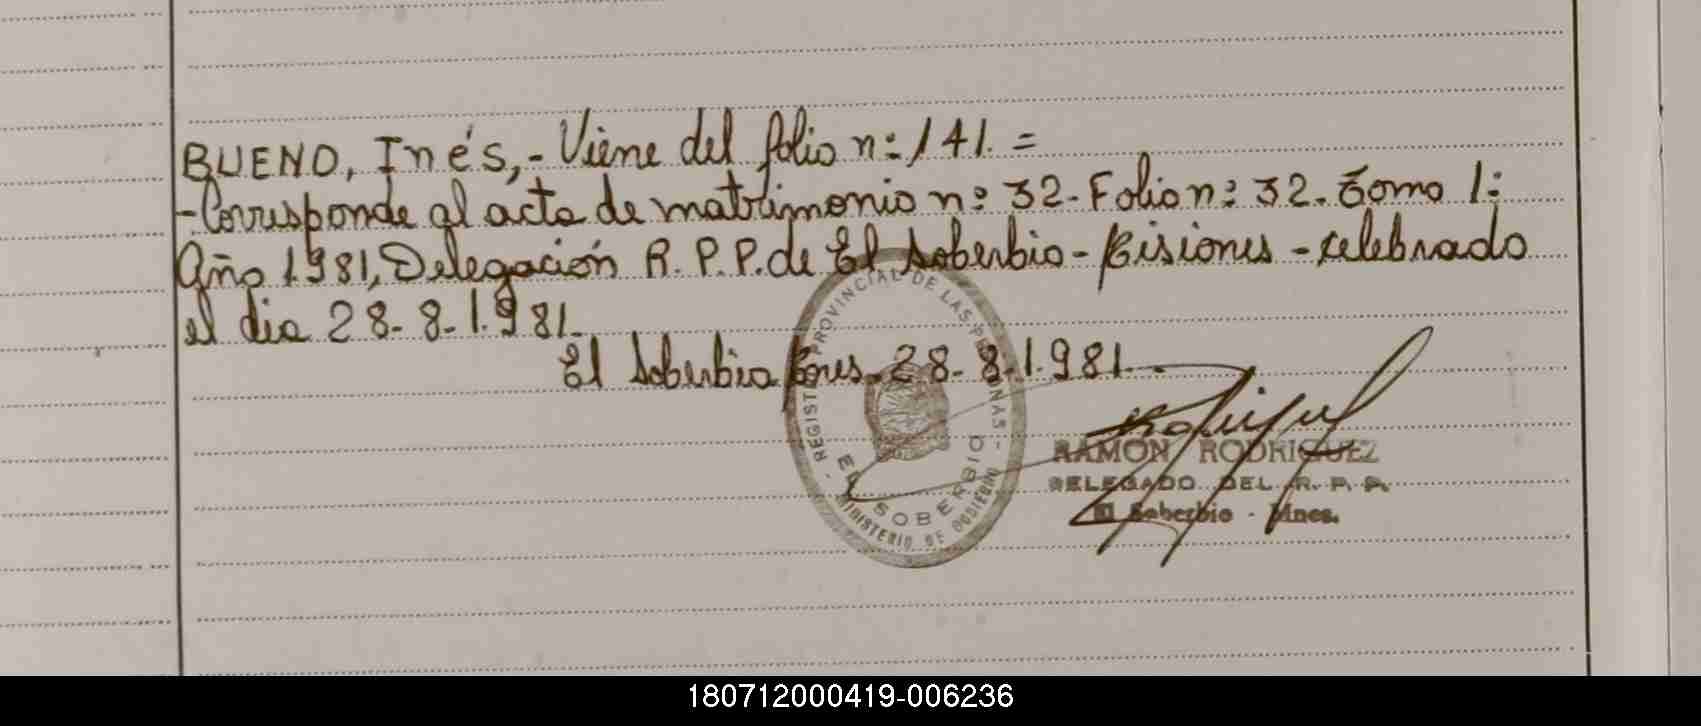 BUENO, Inés,- Viene del folio n: 141. =
-Corresponde al acta de matrimonio n: 32.- Folio n: 32. Tomo 1:
Año 1.981, Delegación R.P.P. de El Soberbio - Misiones - celebrado
el dia 28-8-1.981.-
El Soberbio Mnes. 28-8-1.981.-
- REGISTRO PROVINCIAL DE LAS PERSONAS -
EL SOBERBIO
MINISTERIO DE GOBIERNO
RAMON RODRIGUEZ
DELEGADO DEL R. P. P.
El Soberbio - Mnes.
180712000419-006236